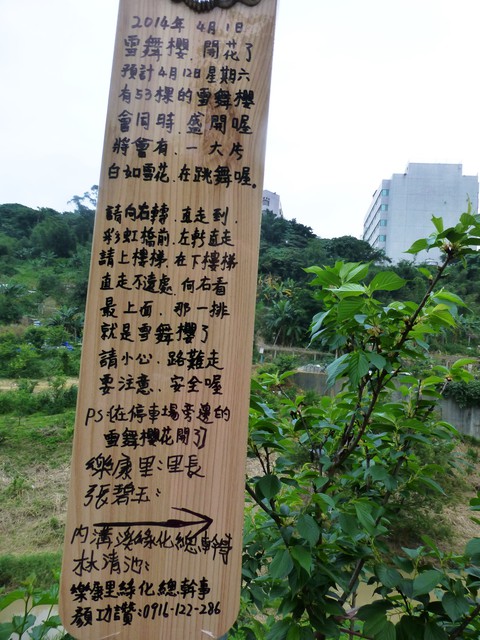 2014年4月1日
雪舞櫻.開花了
預計4月12日星期六
有53棵的雪舞櫻
會同時.盛開喔
將會有.一大片
白如雪花.在跳舞喔。
請向右轉.直走到
彩虹橋前.左轉直走
請上樓梯.在下樓梯
直走不遠處.向右看
最上面.那一排
就是雪舞櫻了
請小心.路難走
要注意.安全喔
PS:在停車場旁邊的
雪舞櫻花開了
樂康里:里長
張碧玉:
內溝溪綠化總幹事
林清池:
樂康里綠化總幹事
顏功讚:0916-122-286